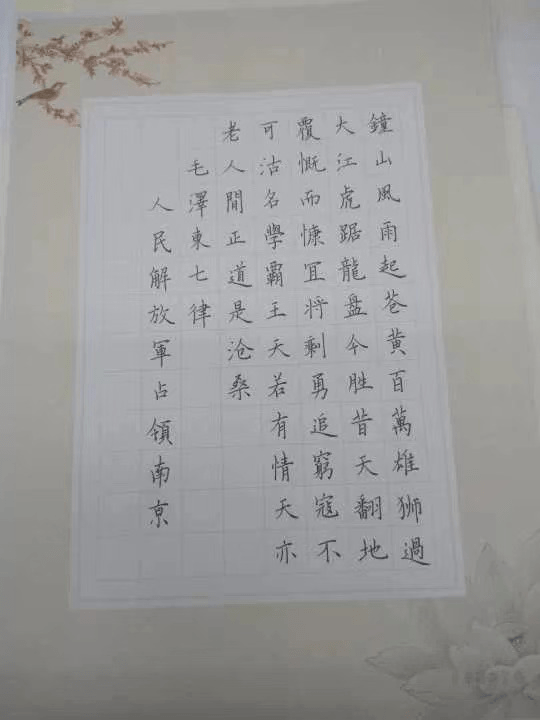 鐘山風雨起苍黄百萬雄狮過
大江虎踞龍盘今胜昔天翻地
覆慨而慷冝将剩勇追窮寇不
可沽名學霸王天若有情天亦
老人間正道是沧桑
毛澤東七律
人民解放軍占領南京